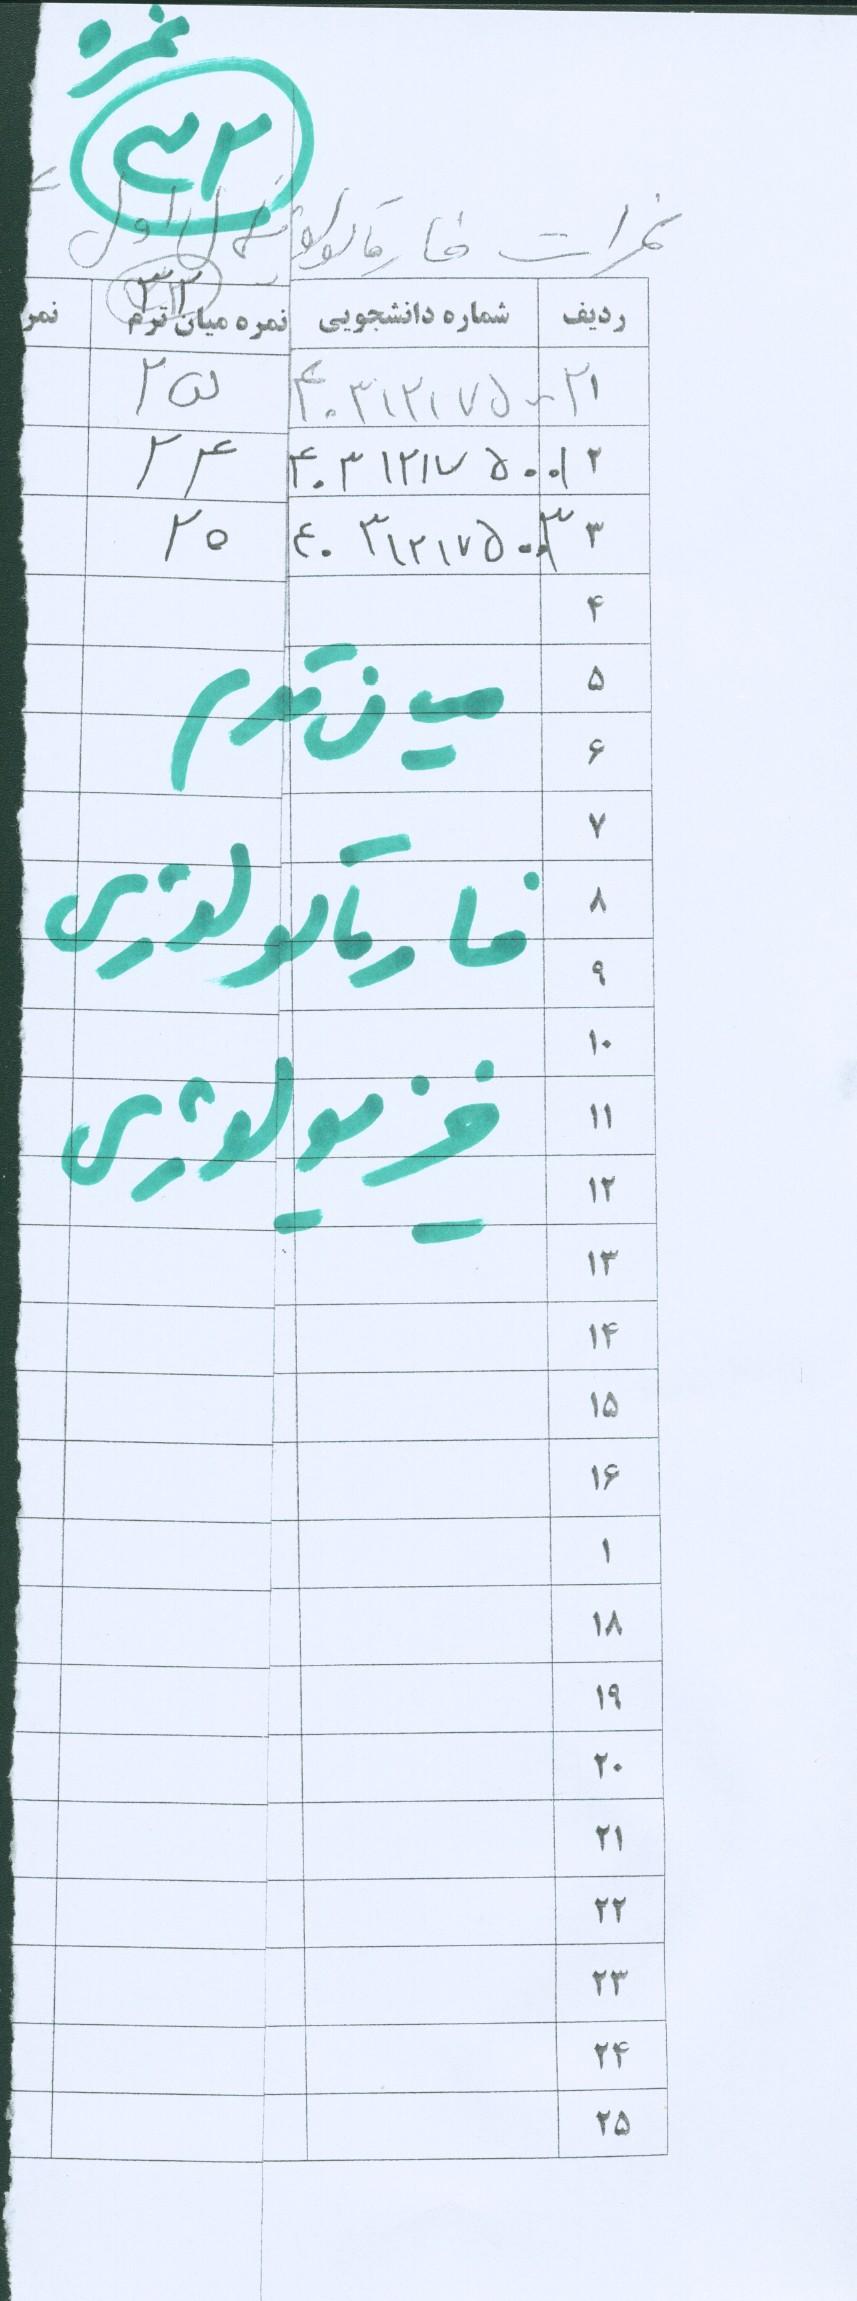 نمره
۳۲
نمرات فارماکولوژی اول
۳۲
ردیف شماره دانشجویی نمره میان ترم نمر
۱ ۴۰۳۱۲۱۷۵۰۰۲ ۲۵
۲ ۴۰۳۱۲۱۷۵۰۰۱ ۲۴
۳ ۴۰۳۱۲۱۷۵۰۰۳ ۲۵
۴
۵
میان ترم
۶
۷
۸
فارماکولوژی
۹
۱۰
۱۱
فیزیولوژی
۱۲
۱۳
۱۴
۱۵
۱۶
۱
۱۸
۱۹
۲۰
۲۱
۲۲
۲۳
۲۴
۲۵